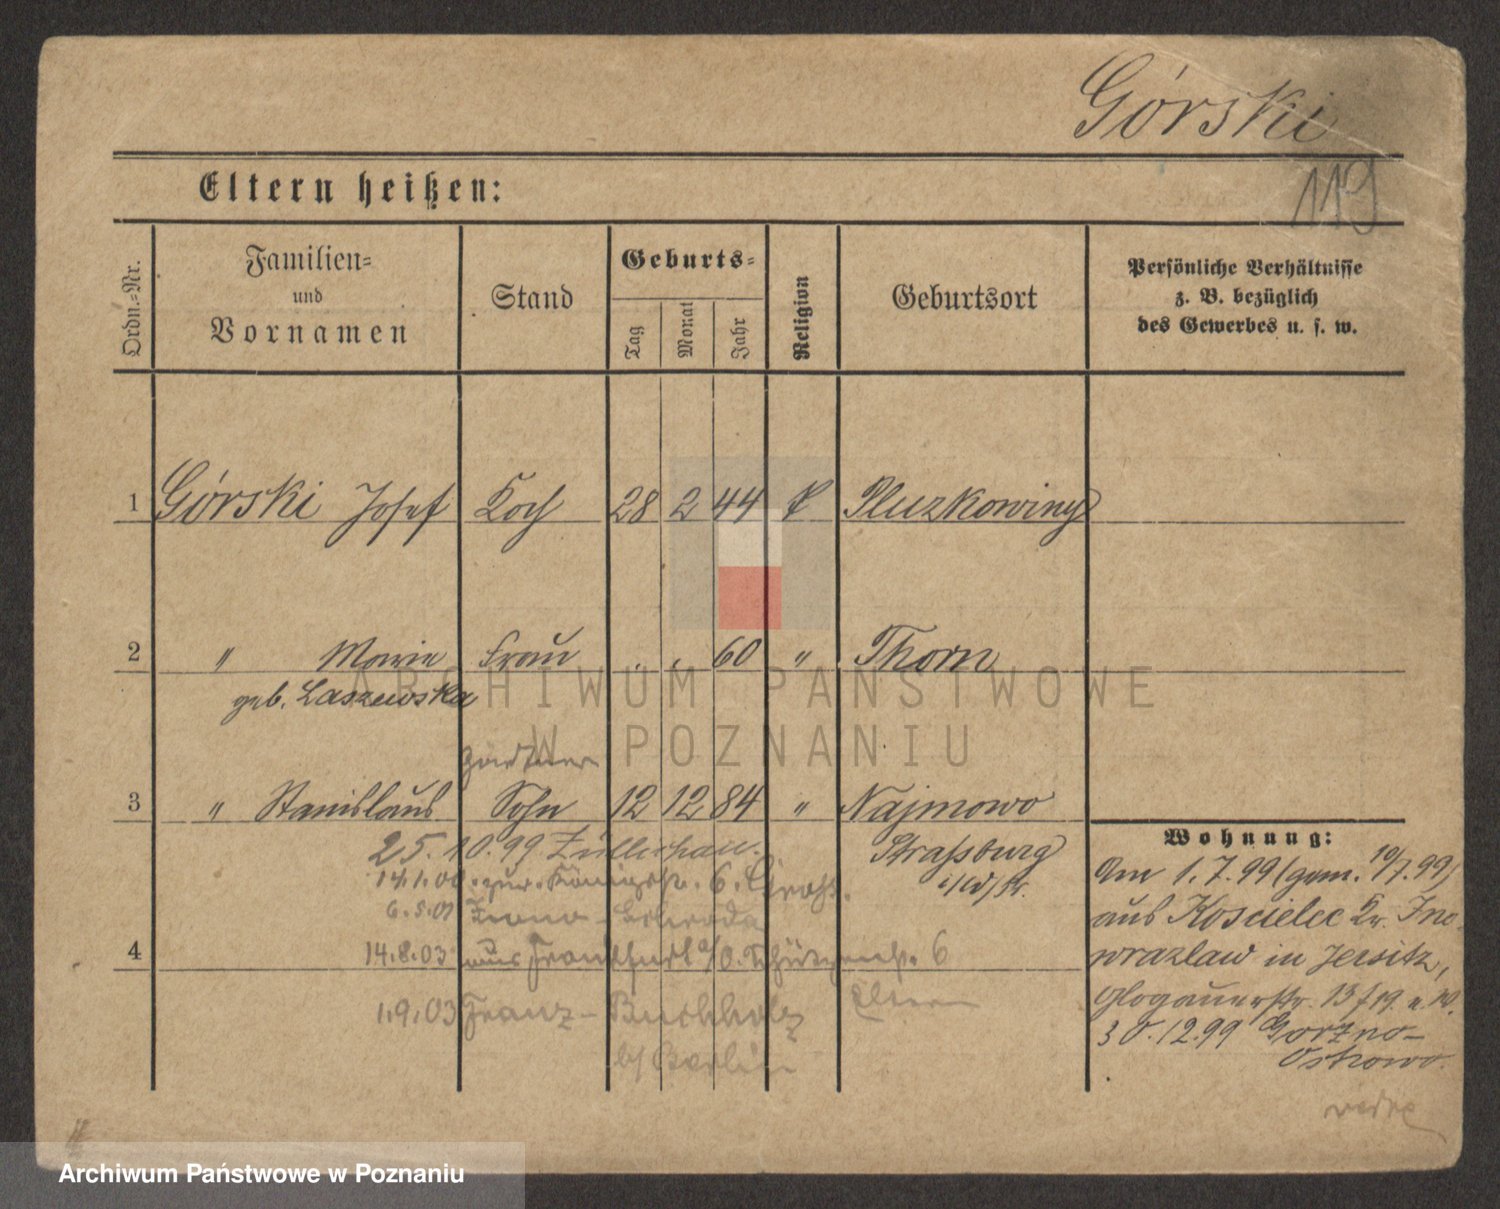 Górski
119
Eltern heißen:
Ordn.-Nr.
Familien-
und
Vornamen
Stand
Geburts-
Tag
Monat
Jahr
Religion
Geburtsort
Persönliche Verhältnisse
z. B. bezüglich
des Gewerbes u. s. w.
1 Górski Josef Koch 28 2 44 k Pluzkowiny
2 " Marie Frau . . 60 " Thorn
geb. Laszewska
Gärtner
3 " Stanislaus Sohn 12 12 84 " Najmowo
Straßburg
i/W/Pr.
25. 10. 99 Züllichau.
14.1.00. zur. Königstr. 6.
6.5.01 Schroda
4
14.8.03 aus Frankfurt a/O. Schützenstr. 6
1.9.03 Franz - Buchholz Eltern
b/ Berlin
Wohnung:
Am 1. 7. 99 (gem. 10/7. 99)
aus Koscielec Kr. Ino-
wrazlaw in Jersitz,
Glogauerstr. 13
30.12.99 Gorzno-
Ostrowo.
ARCHIWUM PAŃSTWOWE
W POZNANIU
Archiwum Państwowe w Poznaniu